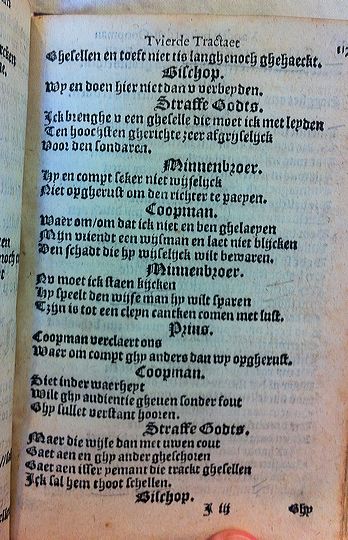 Tvierde Tractaet
Ghesellen en toeft niet tis langhenoch ghehaeckt.
Bisschop.
Wy en doen hier niet dan v verbeyden.
Straffe Godts.
Ick brenghe v een gheselle die moet ick met leyden
Ten hoochsten gherichte zeer afgryselyck
Voor den sondaren.
Minnenbroer.
Hy en compt seker niet wijselyck
Niet opgherust om den richter te paeyen.
Coopman.
Waer om/om dat ick niet en ben ghelaeyen
Mijn vriendt een wijsman en laet niet blijcken
Den schadt die hy wijselyck wilt bewaren.
Minnenbroer.
Nv moet ick staen kijcken
Hy speelt den wijse man hy wilt sparen
Tzijn is tot een cleyn cantken comen met lust.
Prins.
Coopman verclaert ons
Waer om compt ghy anders dan wy opgherust.
Coopman.
Siet inder waerheyt
Wilt ghy audientie gheuen sonder fout
Ghy sullet verstant hooren.
Straffe Godts.
Maer die wijse dan met uwen cout
Gaet aen en ghy ander gheschoren
Gaet aen isser yemant die trackt ghesellen
Ick sal hem thoot schellen.
Bisschop.
J iij Ghy